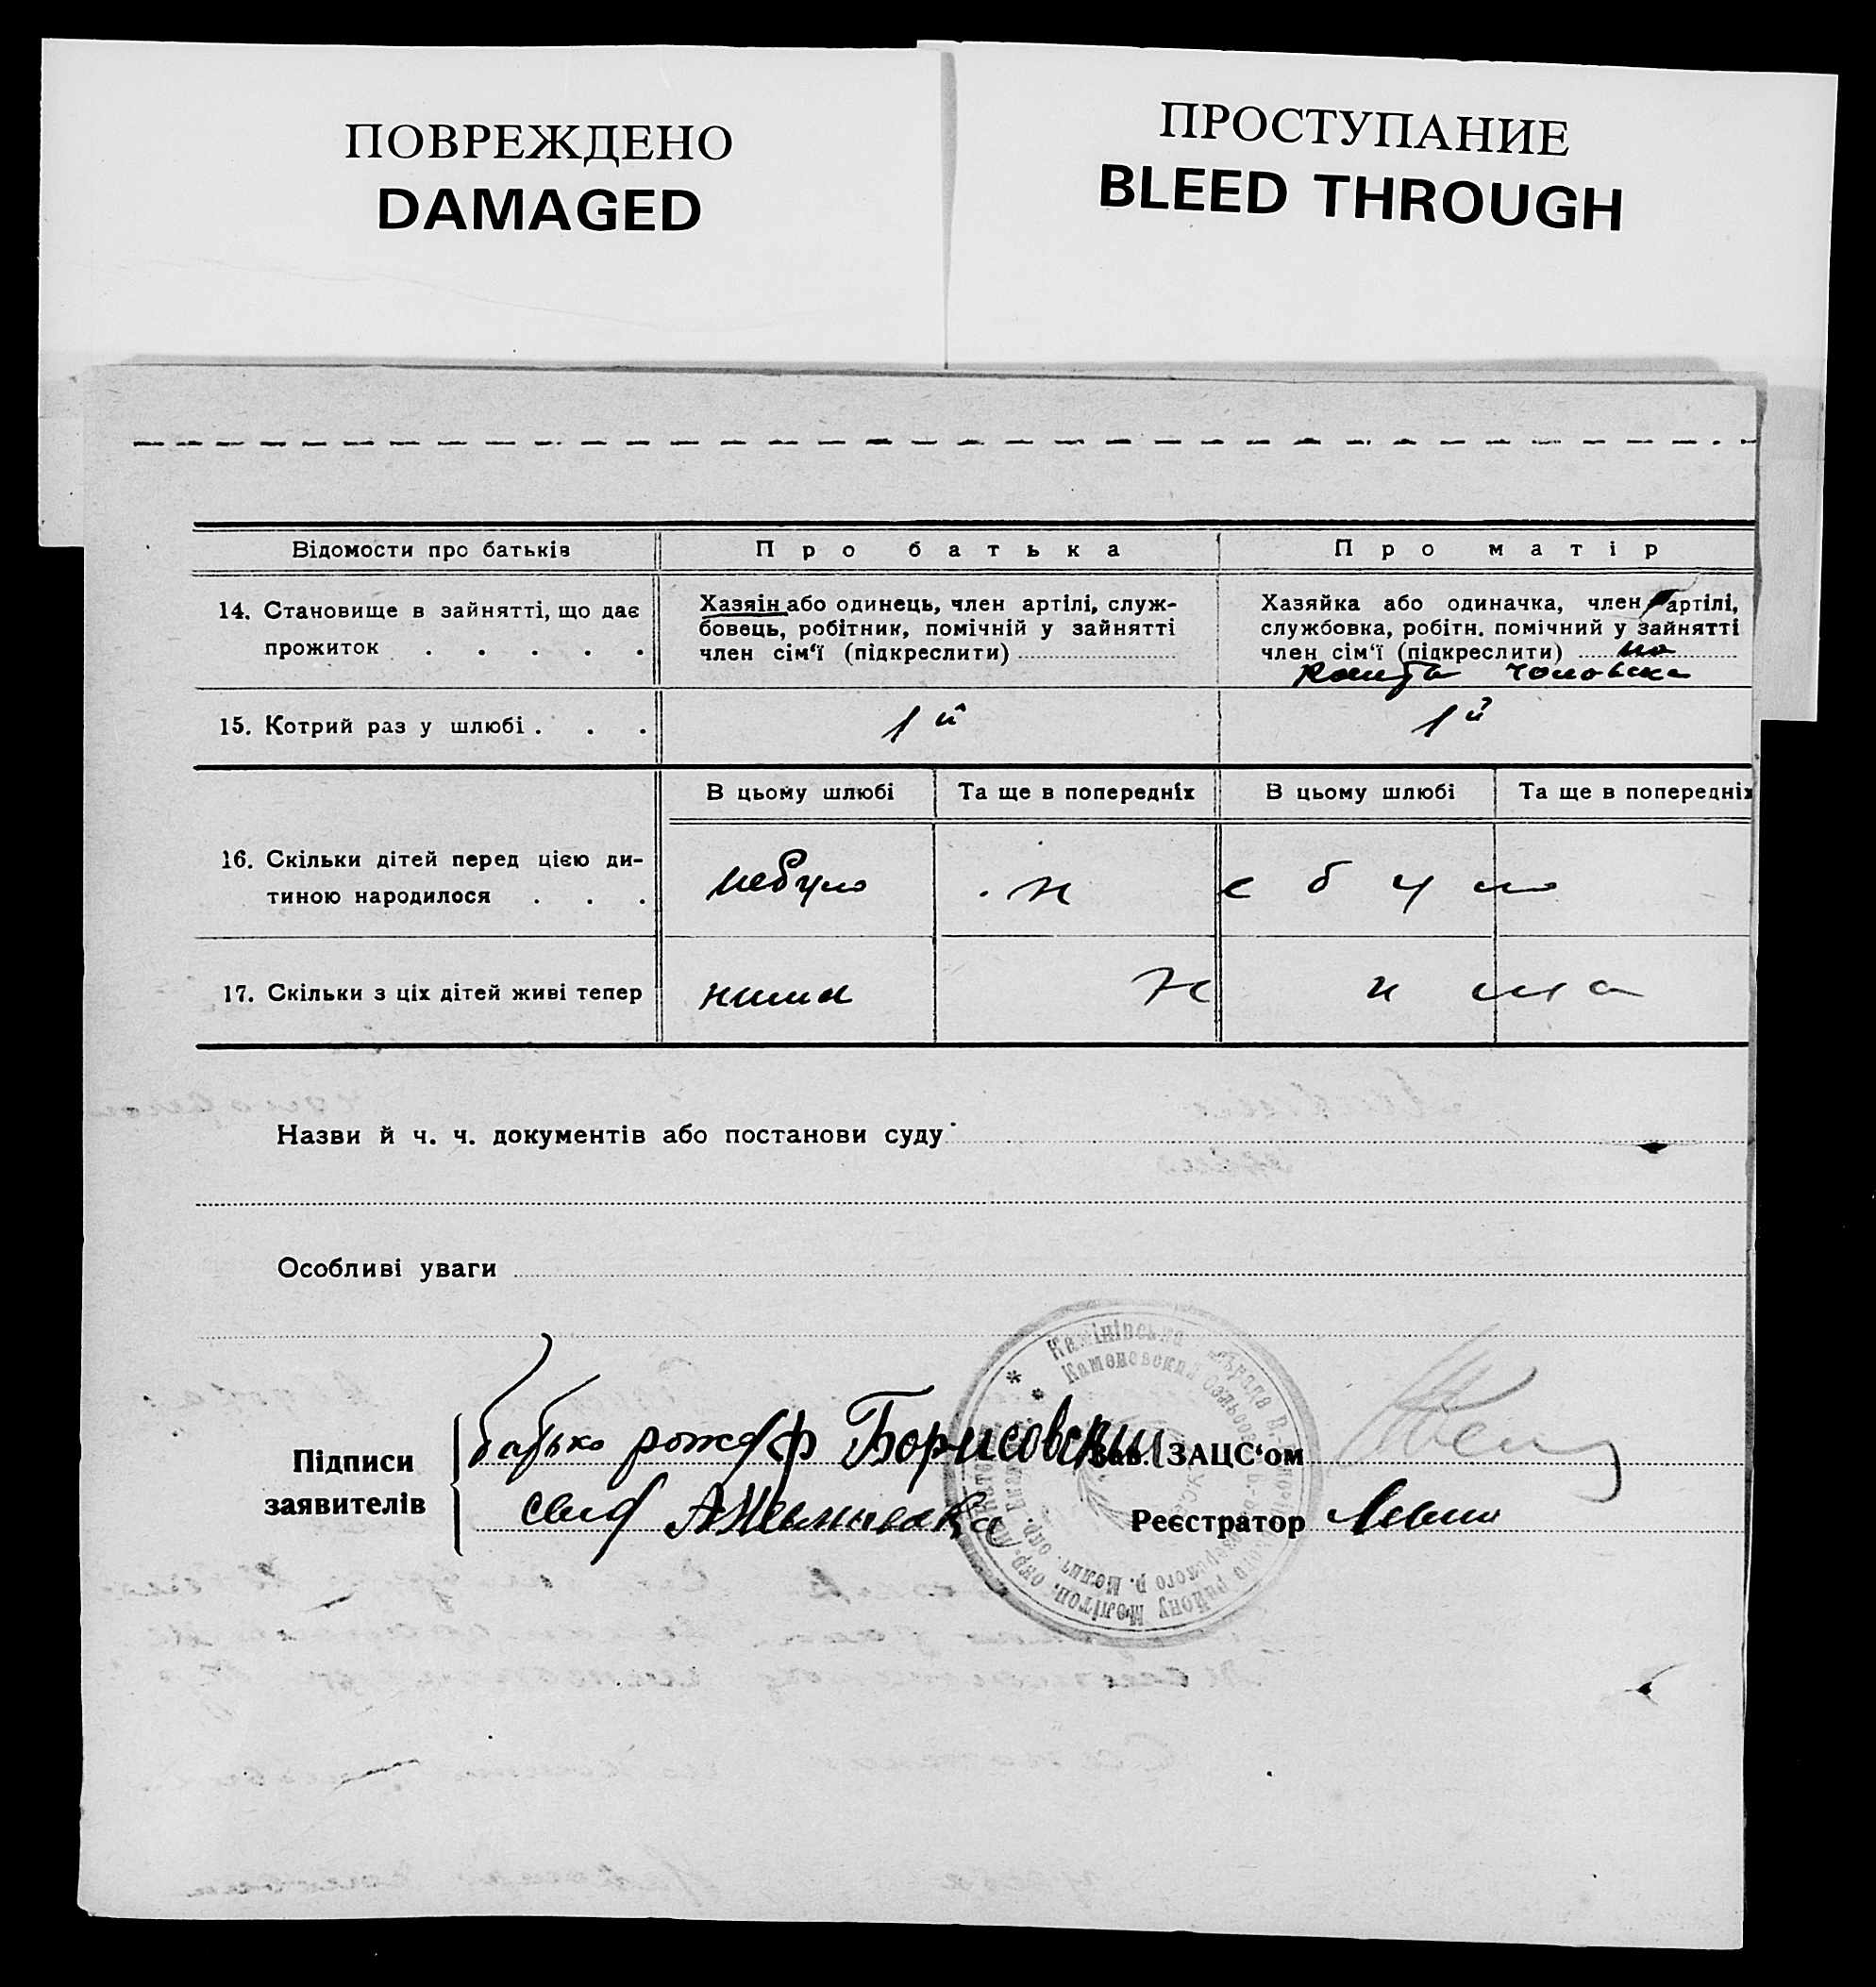 ПОВРЕЖДЕНО
DAMAGED
ПРОСТУПАНИЕ
BLEED THROUGH
Відомости про батьків
Про батька
Про матір
14. Становище в зайнятті, що дає
прожиток . . . . .
Хазяїн або одинець, член артілі, служ-
бовець, робітник, помічній у зайнятті
член сім‘ї (підкреслити)
Хазяйка або одиначка, член артілі,
службовка, робітн. помічний у зайнятті
член сім‘ї (підкреслити) на
кошты чоловека
15. Котрий раз у шлюбі . . .
1й
1й
В цьому шлюбі
Та ще в попередніх
В цьому шлюбі
Та ще в попередніх
16. Скільки дітей перед цією ди-
тиною народилося . . .
небуло
не було
17. Скільки з ціх дітей живі тепер
нима
Нима
Назви й ч. ч. документів або постанови суду
Особливі уваги
Підписи
заявителів
батько Борисовский
Зав. ЗАЦС‘ом
Реєстратор